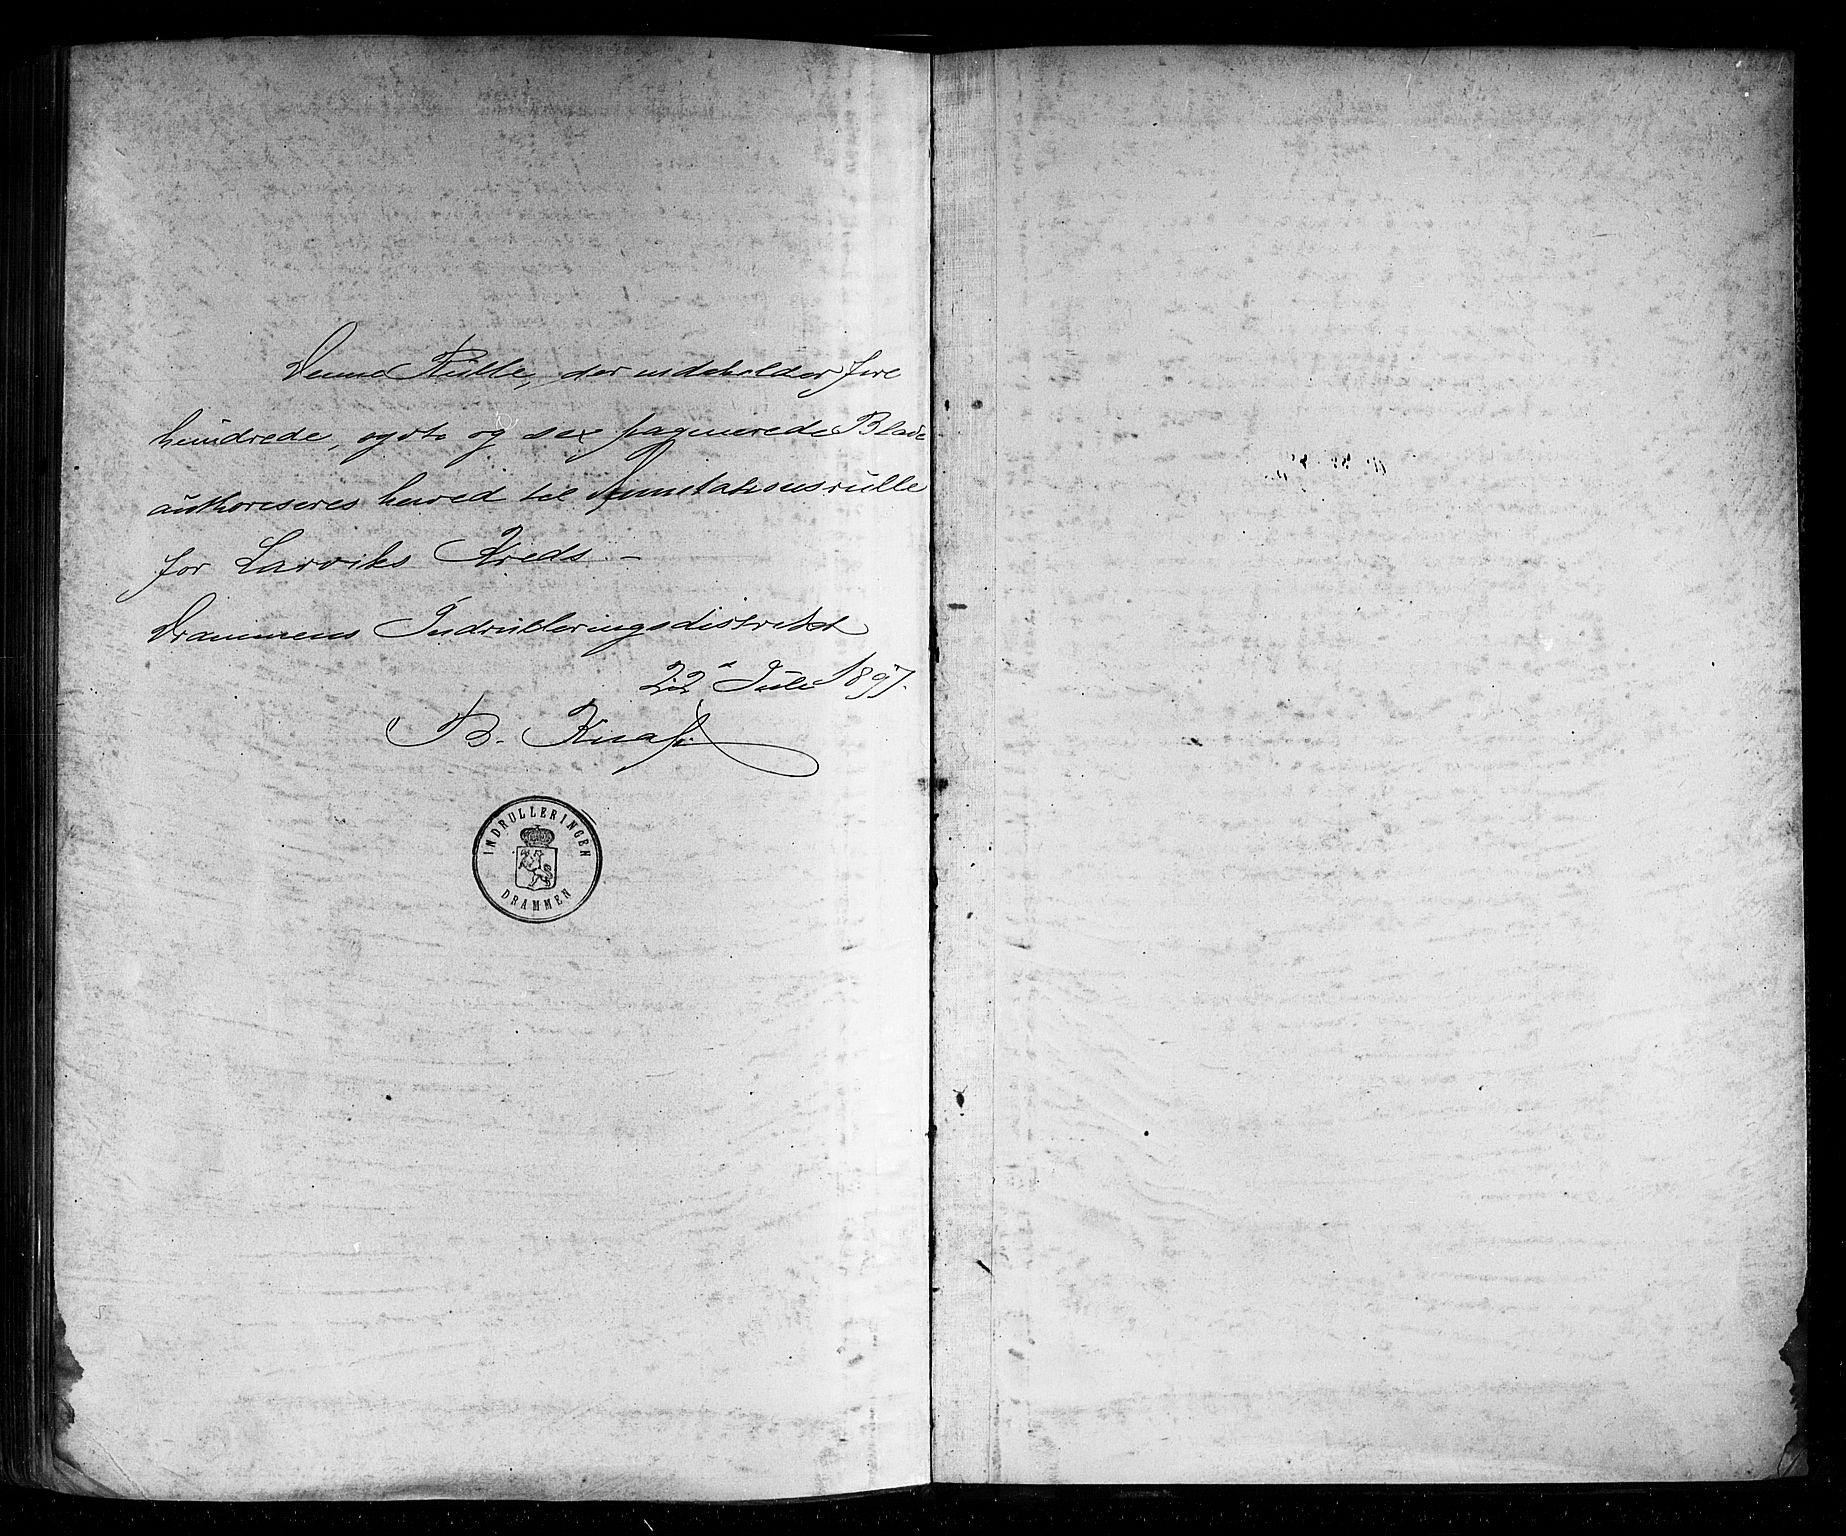 Denne Rulle, der indeholder fire
hundrede, ogsto og sex paginerede Blade
authoriseres herved til Annotationsrulle
for Larviks Kreds –
Drammens Indrulleringsdistrikt
22 Juli 1897.
B. Knap
INDRULLERINGEN
DRAMMEN